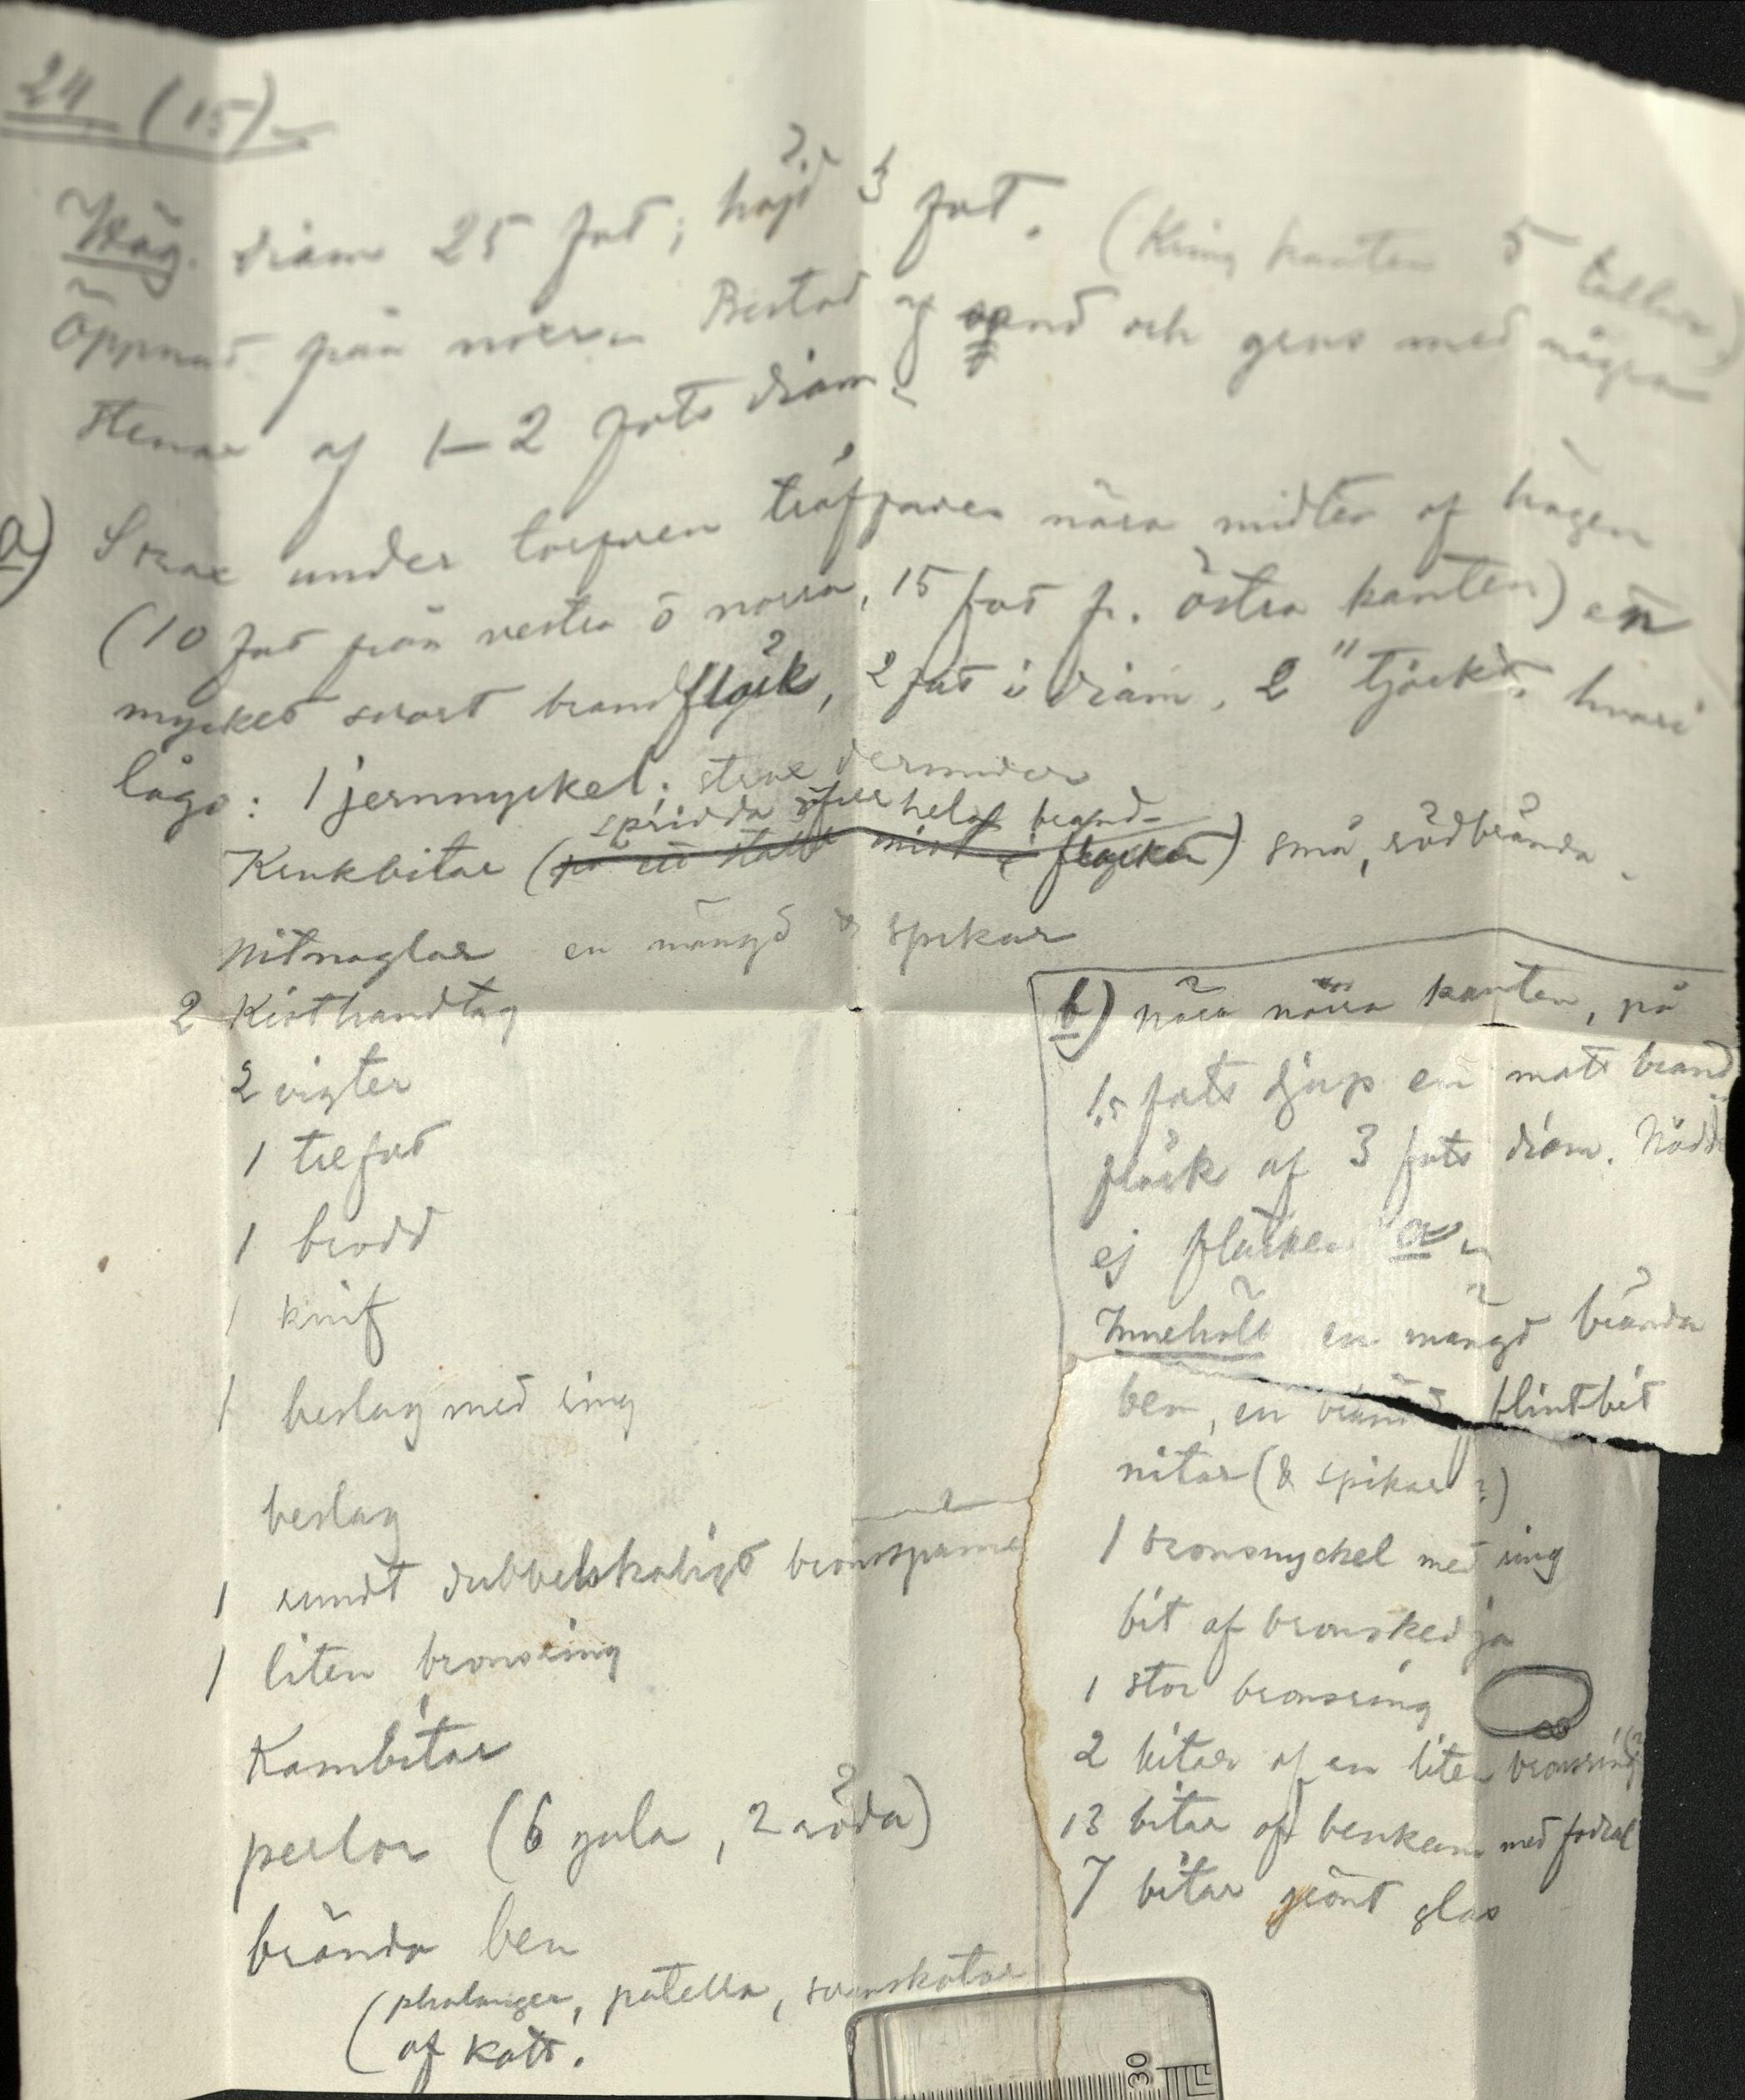 24 (15)
Hög. diam 25 fot; höjd 3 fot. (Kring kanten 5 tallar)
Öppnad från norr. Bestod af sand och grus med några
stenar af 1–2 fots diam.
a) Strax under torfven träffades nära midten af högen
(10 fot från vestra o norra, 15 fot fr. östra kanten) en
mycket svart brandfläck, 2 fot i diam, 2" tjock, hvari
lågo: 1 jernnyckel; strax derunder
spridda öfver hela brand-
Krukbitar (på ett ställe midt i fläcken) små, rödbrända.
Nitnaglar en mängd & spikar
2 Kisthandtag
2 vigter
1 trefot
1 brodd
1 knif
1 beslag med ring
beslag
1 rundt dubbelskaligt bronsspänne
1 liten bronsring
Kambitar
perlor (6 gula, 2 röda)
brända ben
(phalanger, patella, svanskotor
(af katt.
b) Nära norra kanten, på
1,5 fots djup en matt brand
fläck af 3 fots diam. Nådde
ej fläcken a.
Innehöll en mängd brända
ben, en bränd flintbit
nitar (& spikar?)
1 bronsnyckel med ring
bit af bronskedja
1 stor bronsring
2 bitar af en liten bronsring
13 bitar af benkam med fodral
7 bitar grönt glas
30